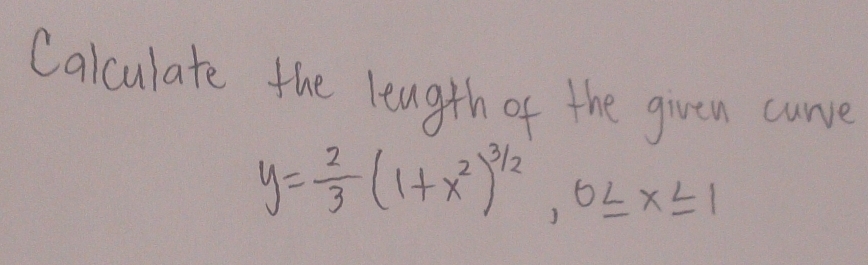 Calculate the length of the given curve
y = 2/3 (1+x²)^3/2 , 0 ≤ x ≤ 1